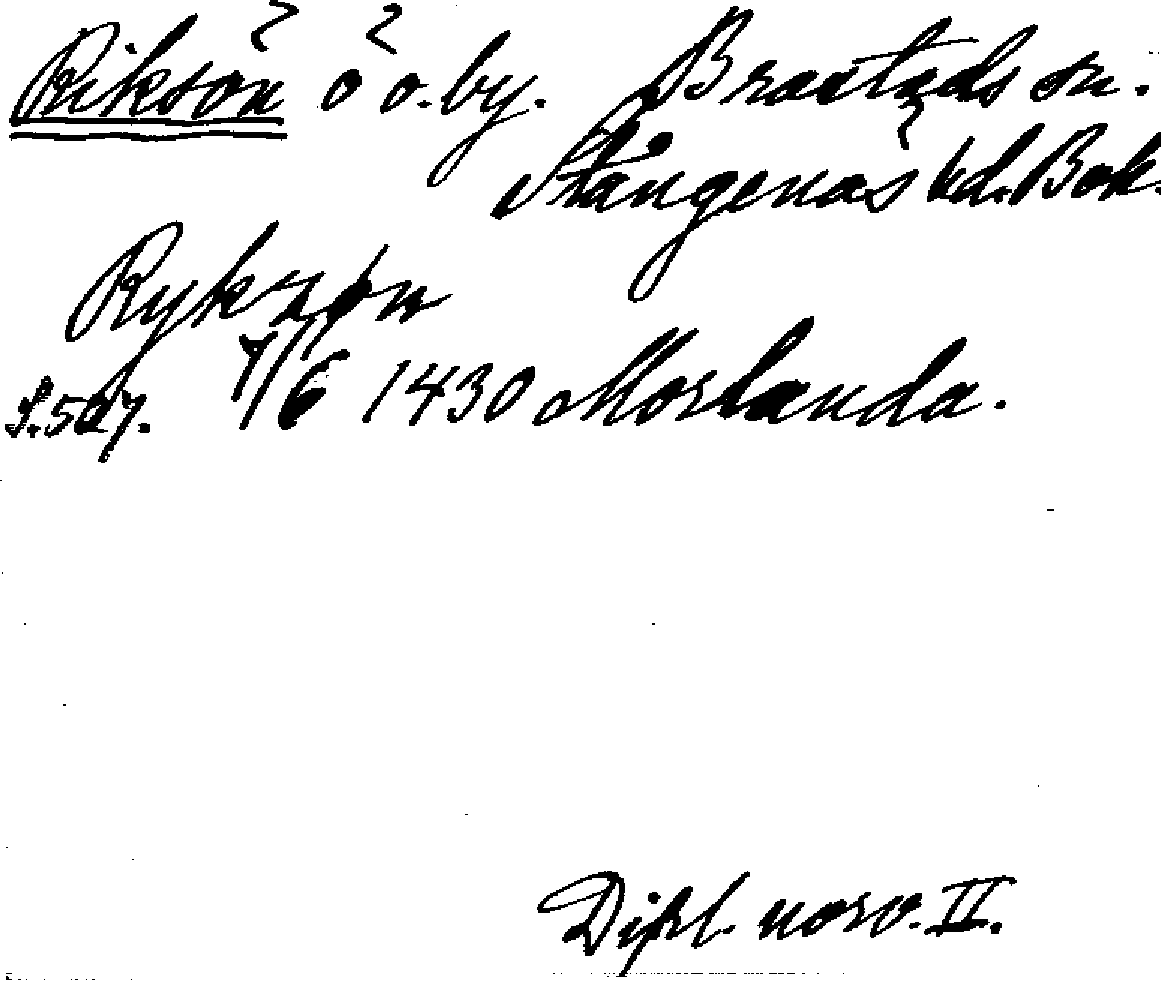 Riksön ö o. by. Brastads sn.
Stångenäs hd. Boh.
Rykzøn
S. 507. 7/6 1430 Morlanda.
Dipl. norv. II.